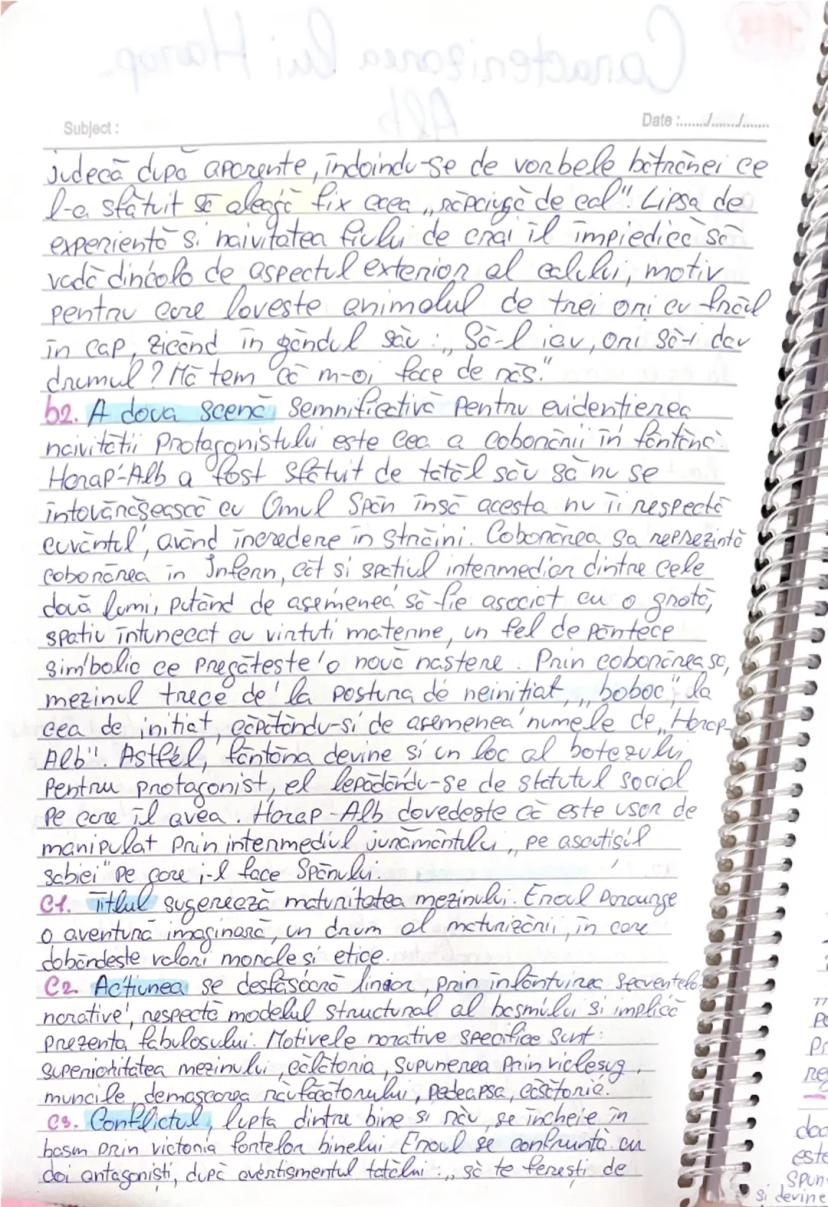 Caracterizarea lui Harap-
Alb
Subject :
Date :....../......./.......
judecă după aparențe, îndoindu-se de vorbele bătrânei ce
l-a sfătuit să aleagă fix acea „răpciugă de cal" Lipsa de
experiență și naivitatea fiului de crai îl împiedică să
vadă dincolo de aspectul exterior al calului, motiv
pentru care lovește animalul de trei ori cu frâul
în cap, zicând în gândul său: „Să-l iau, ori să-i dau
drumul? Mă tem că m-oi face de râs."
b2. A doua scenă semnificativă pentru evidențierea
naivității protagonistului este cea a coborârii în fântână.
Harap-Alb a fost sfătuit de tatăl său să nu se
întovărășească cu Omul Spân însă acesta nu îi respectă
cuvântul, având încredere în străini. Coborârea sa reprezintă
coborârea în Infern, cât și spațiul intermediar dintre cele
două lumi, putând de asemenea să fie asociat cu o grotă,
spațiu întunecat cu virtuți materne, un fel de pântece
simbolic ce pregătește o nouă naștere. Prin coborârea sa,
mezinul trece de la postura de neinițiat, „boboc", la
cea de inițiat, căpătându-și de asemenea numele de „Harap-
Alb". Astfel, fântâna devine și un loc al botezului
pentru protagonist, el lepădându-se de statutul social
pe care îl avea. Harap-Alb dovedește că este ușor de
manipulat prin intermediul jurământului „pe ascuțișul
sabiei" pe care i-l face Spânului.
C1. Titlul sugerează maturitatea mezinului. Eroul parcurge
o aventură imaginară, un drum al maturizării, în care
dobândește valori morale și etice.
C2. Acțiunea se desfășoară liniar, prin înlănțuirea secvențelor
narative, respectă modelul structural al basmului și implică
prezența fabulosului. Motivele narative specifice sunt:
superioritatea mezinului, călătoria, supunerea prin vicleșug,
muncile, demascarea răufăcătorului, pedeapsa, căsătoria.
C3. Conflictul, lupta dintre bine și rău, se încheie în
basm prin victoria forțelor binelui. Eroul se confruntă cu
doi antagoniști, după avertismentul tatălui: „să te ferești de
este
Spun
și devine